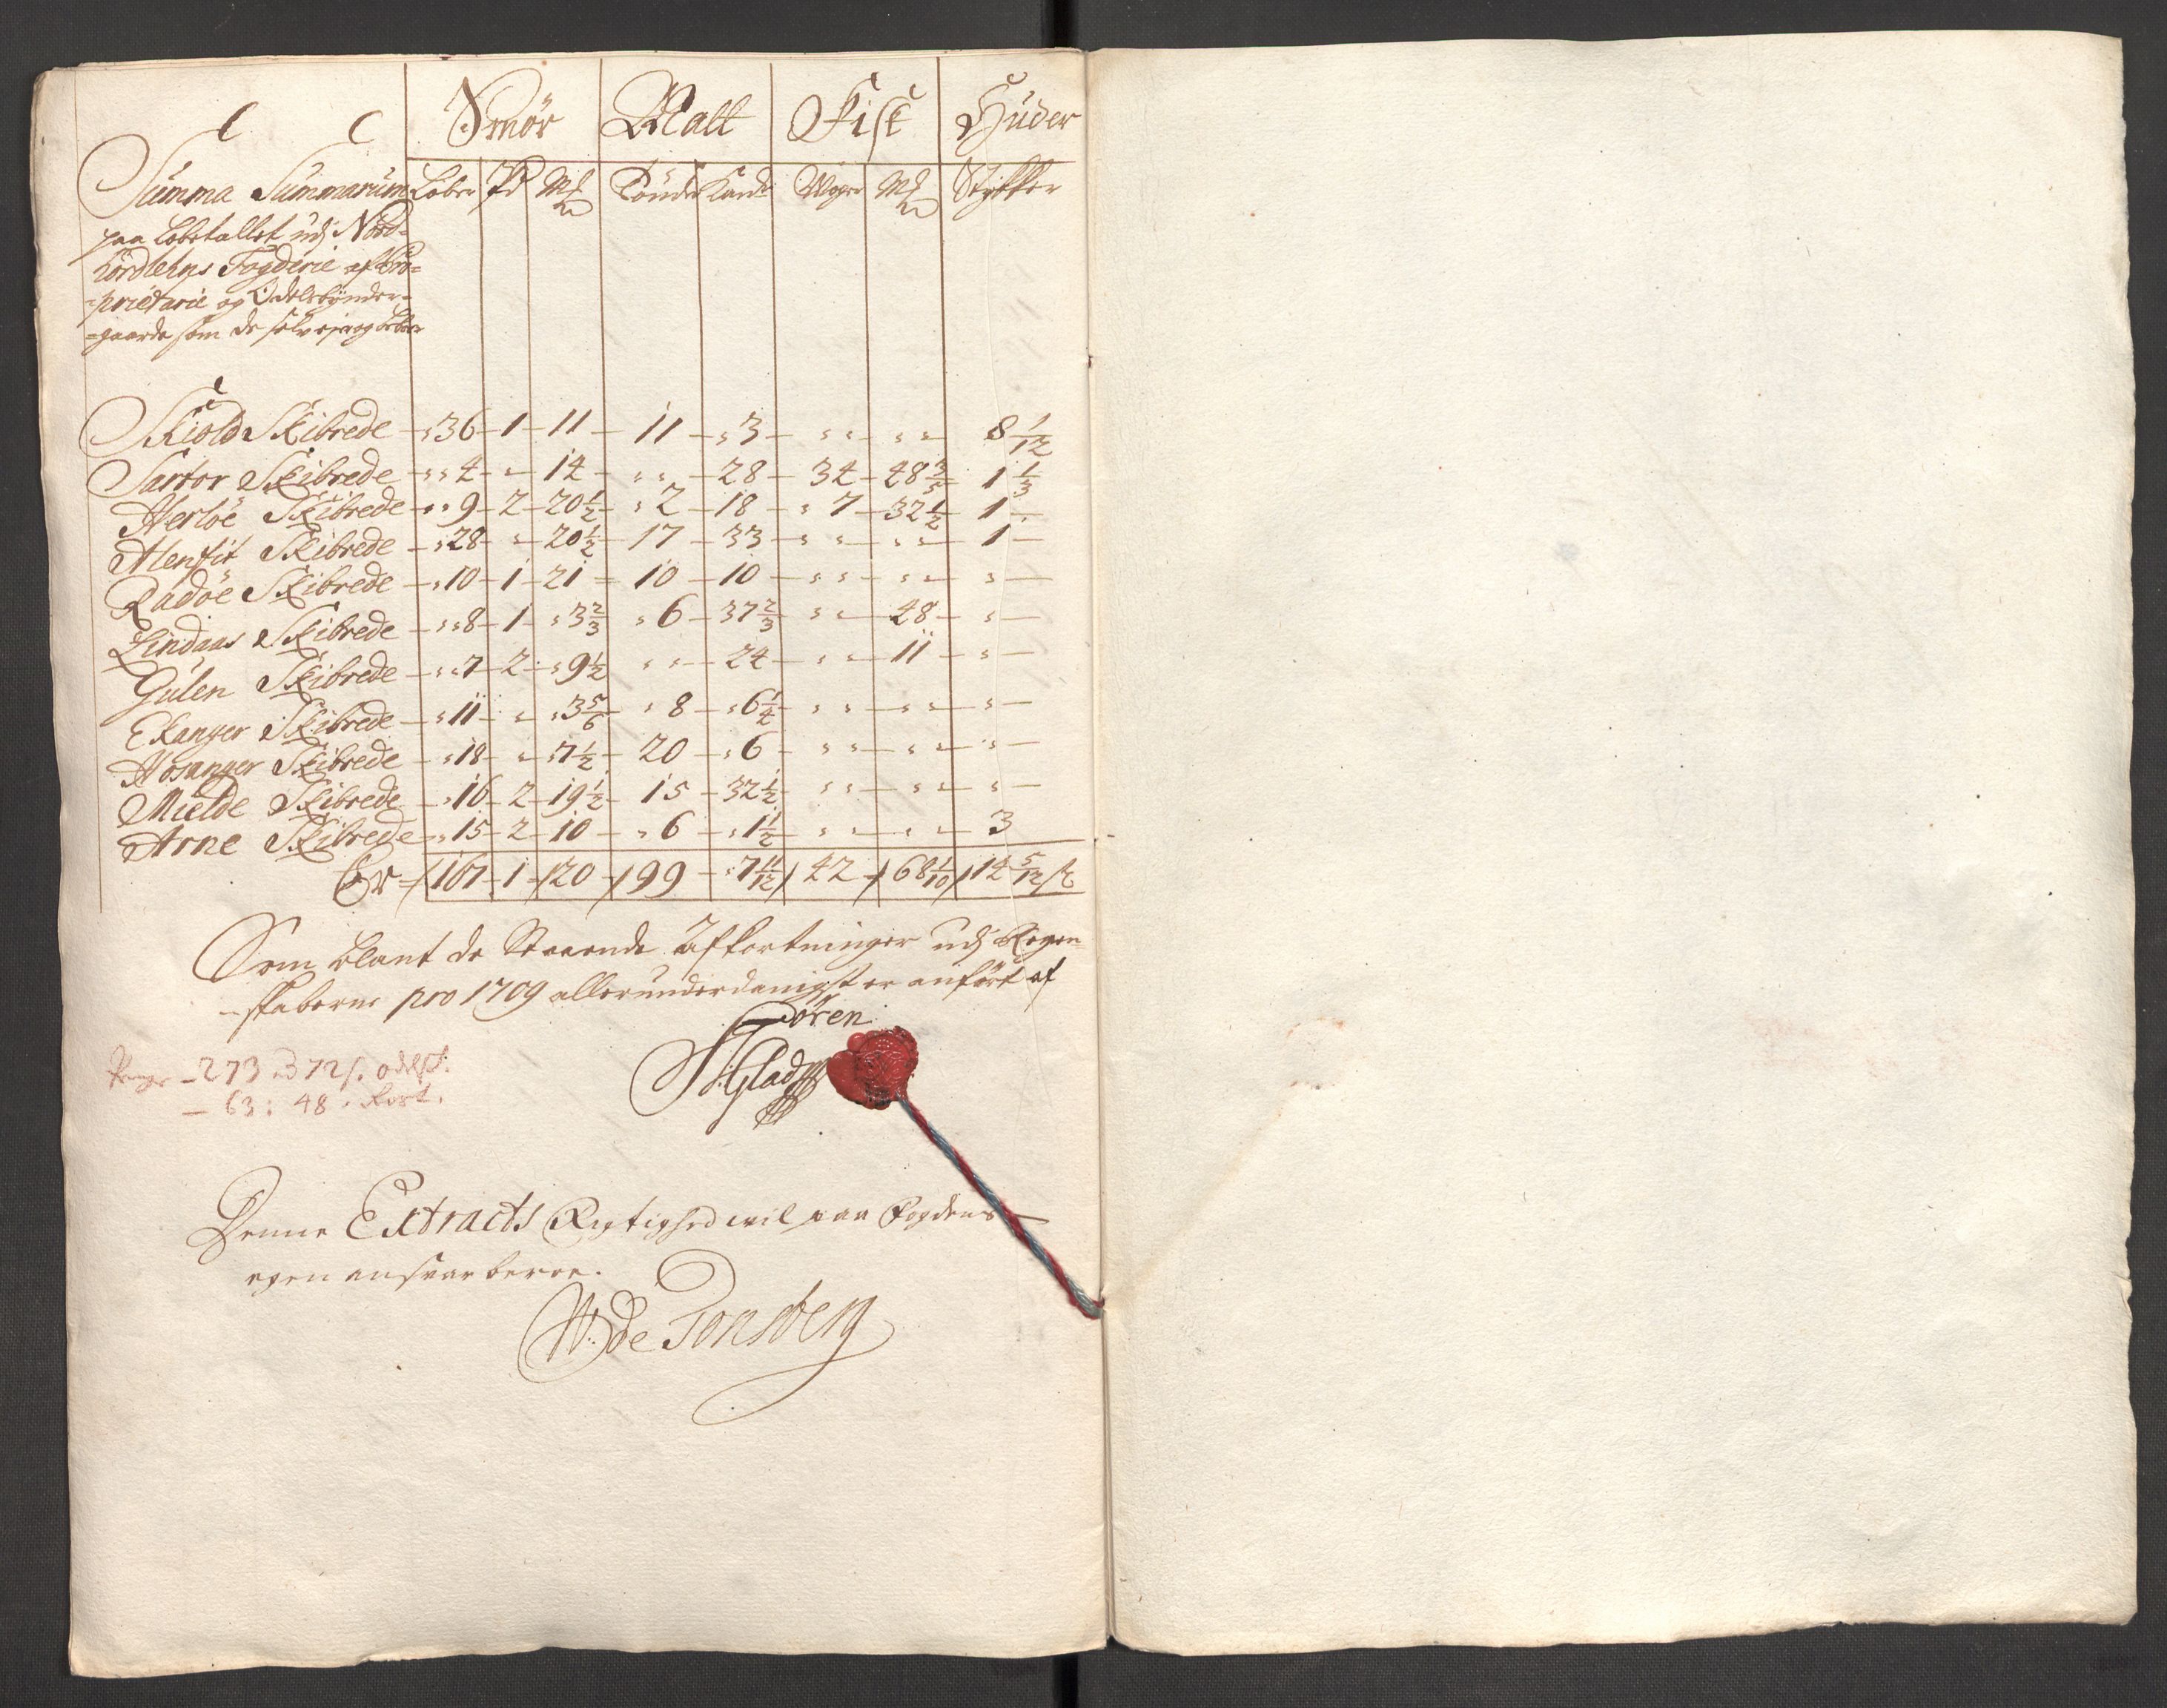 Smör Malt Fisk Huder
Summa Summarum Løber Pd M℔ Tönder Kand: Woger M℔ Stÿkker
paa Løbetallet udj Nord-
hordlehns Fogderie af Pro=
=prietarie og Odelsbönder-
=gaarde som de selv ejer og beboer
Skiold Skibrede 36 1 11 11 3 „ „ „ „ 8 1/12
Sartor Skibrede 4 „ 14 „ „ 28 34 48 3/5 1 1/3
Herlöe Skibrede 9 2 20 1/2 2 18 7 32 1/2 1
Alenfit Skibrede 28 „ 20 1/2 17 33 „ „ „ „ 1
Radöe Skibrede 10 1 21 10 10 „ „ „ „ „
Lindaas Skibrede 8 1 3 2/3 6 37 2/3 „ „ 48 „
Gulen Skibrede 7 2 9 1/2 „ „ 24 „ „ 11 „
Ekanger Skibrede 11 „ 3 5/6 8 6 1/4 „ „ „ „ „
Hosanger Skibrede 18 „ 7 1/2 20 6 „ „ „ „ „
Mielde Skibrede 16 2 19 1/2 15 32 1/2 „ „ „ „ „
Arne Skibrede 15 2 10 6 1 1/2 „ „ „ „ 3
Er 167 1 20 99 7 11/12 42 68 1/10 14 5/12
Som blant de Staaende Afkortninger udj Regen
-skaberne pro 1709 allerunderdanigst er anfört af
Sören
273 rd 72 s. odelsk:
63: 48
Denne Extracts Rigtighed vil paa Fogdens
egen ansvar beroe.
W: de Tonsberg